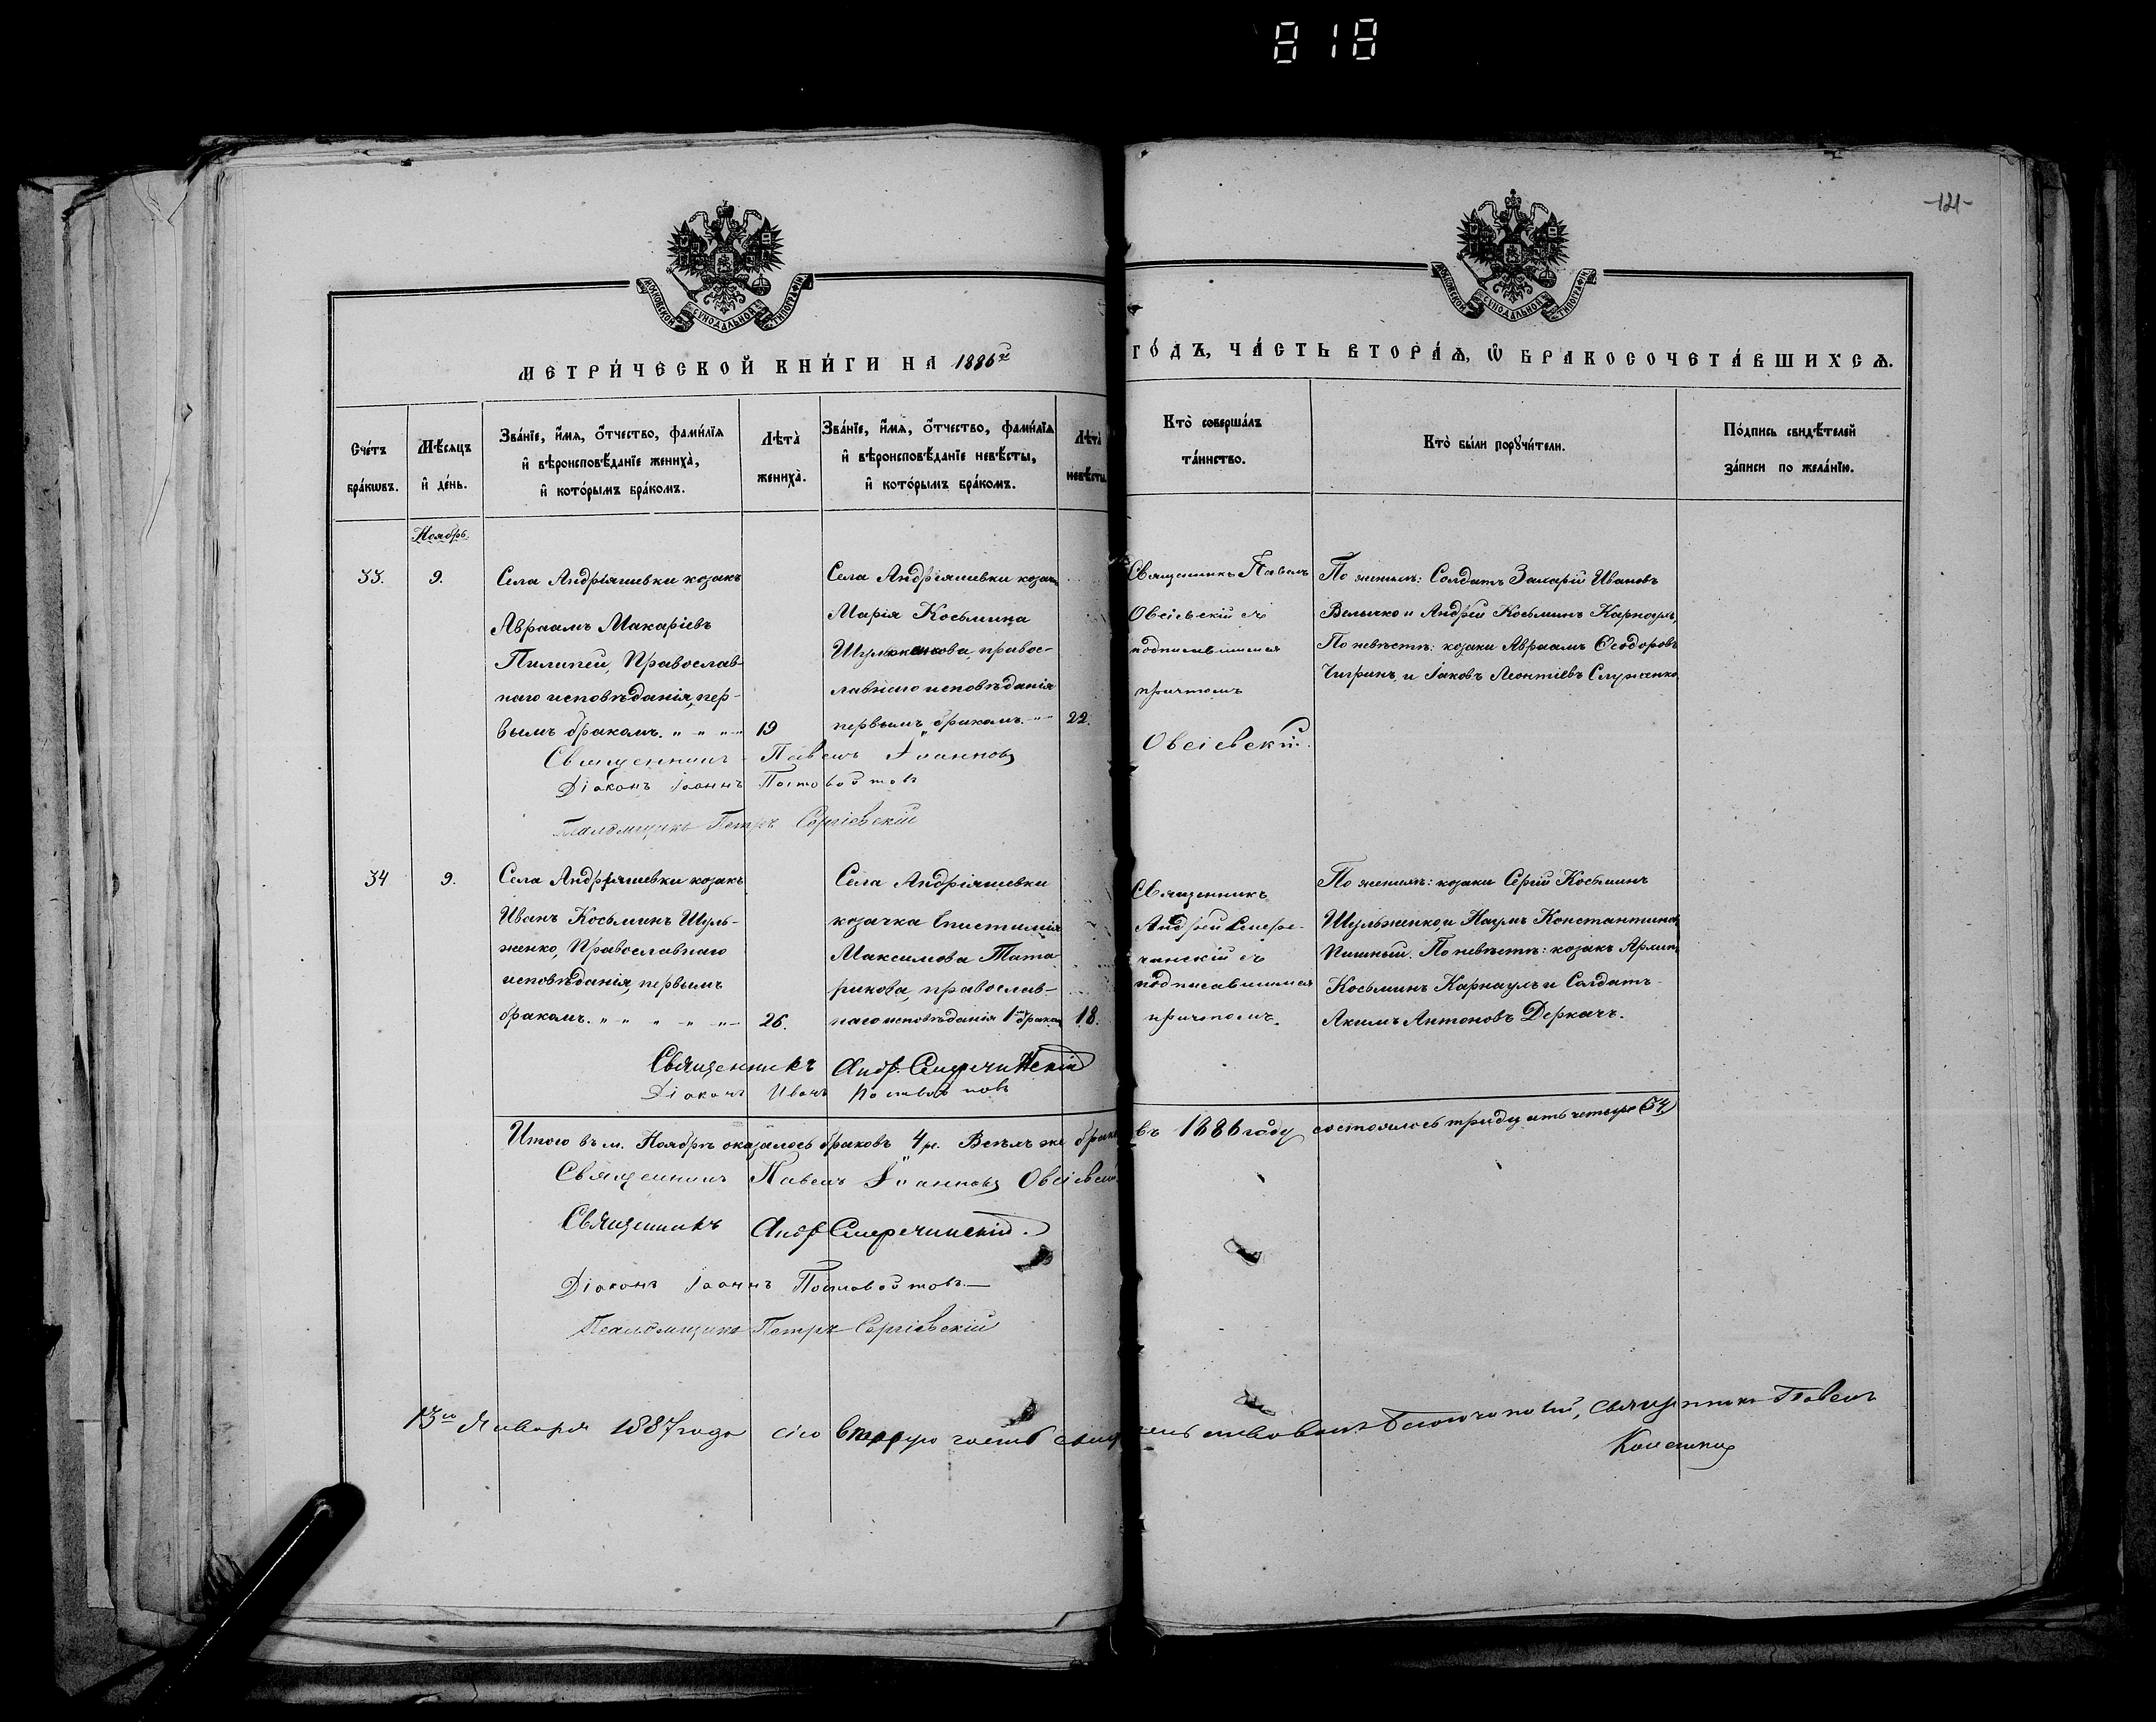 818
-121-
МОСКОВСКОЙ СѴНОДАЛЬНОЙ ТИПОГРАФІИ
МОСКОВСКОЙ СѴНОДАЛЬНОЙ ТИПОГРАФІИ
МЕТРИ́ЧЕСКОЙ КНИ́ГИ НА 1886й
ГО́ДЪ, ЧА́СТЬ ВТОРА́Ѧ, Ѽ БРАКОСОЧЕТА́ВШИХСѦ.
Сче́тъ бра́кωвъ.
Мѣ́сѧцъ и҆ де́нь.
Зва́нїе, и҆́мѧ, ѻ҆́тчество, фами́лїѧ
и҆ вѣроисповѣ́данїе жениха̀,
и҆ кото́рымъ бра́комъ.
Лѣта̀ жениха̀.
Зва́нїе, и҆́мѧ, ѻ҆́тчество, фами́лїѧ
и҆ вѣроисповѣ́данїе невѣ́сты,
и҆ кото́рымъ бра́комъ.
Лѣта̀ невѣ́сты.
Кто̀ соверша́лъ
та́инство.
Кто̀ бы́ли порꙋчи́тели.
По́дпись свидѣ́телей
за́писи по жела́нїю.
Ноябрь.
33.
9.
Села Андріяшевки козакъ
Авраамъ Макаріевъ
Пилипей, Православ-
наго исповѣданія, пер-
вымъ бракомъ. " " " "
19
Села Андріяшевки козачка
Марія Косьмина
правос-
лавнаго исповѣданія
первымъ бракомъ. " "
22.
Священникъ Павелъ
Овсіевскій съ
подписавшимся
причтомъ
Овсіевскій.
По женихѣ: Солдатъ Захарій Ивановъ
Величко и Андрей Косьминъ Карнаухъ,
По невѣстѣ: козаки Авраамъ Ѳеодоровъ
Чигринъ, и Іаковъ Леонтіевъ
Священникъ Павелъ Іоанновъ
Діаконъ Іоаннъ Постовойтовъ
Псаломщикъ Петръ Сергіевскій
34
9.
Села Андріяшевки козакъ
Иванъ Косьминъ Шуль-
женко, Православнаго
исповѣданія, первымъ
бракомъ. " " " " "
26.
Села Андріяшевки
козачка Епистимія
Максимова Тата-
рикова, православ-
наго исповѣданія 1мъ бракомъ
18.
Священникъ
Андрей Смере-
чинскій съ
подписавшимся
причтомъ.
По женихѣ: козаки Сергій Косьминъ
Шульженко, и Наумъ Константиновъ
Пишный. По невѣстѣ: козакъ
Косьминъ Карнаухъ и Солдатъ
Акимъ Антоновъ Деркачъ.
Священникъ Андр. Смеречинскій
Діаконъ Иванъ Постовойтовъ
Итого въ м. Ноябрѣ оказалось браковъ 4ре. Всѣхъ же браковъ въ 1886 году состоялось тридцать четыре (34)
Священникъ Павелъ Іоанновъ Овсіевскій
Священникъ Андр. Смеречинскій.
Діаконъ Іоаннъ Постовойтовъ
Псаломщикъ Петръ Сергіевскій
13го Января 1887 года сію вторую часть свидѣтельствовалъ Благочинный, священникъ Павелъ